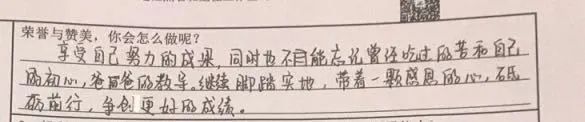 荣誉与赞美，你会怎么做呢？
享受自己努力的成果，同时也不能忘记曾经吃过的苦和自己
的初心，爸爸的教导。继续脚踏实地，带着一颗感恩的心，砥
砺前行，争创更好的成绩。